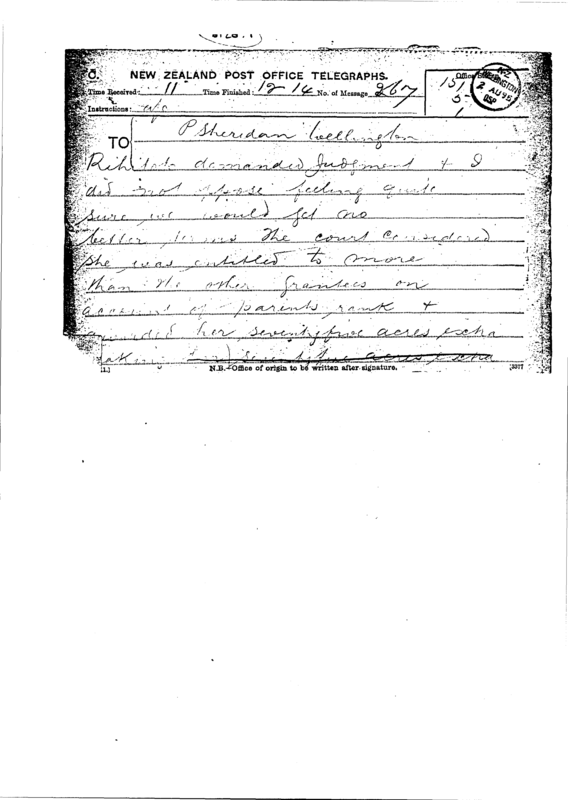 C. NEW ZEALAND POST OFFICE TELEGRAPHS.
Time Received: 11 Time Finished: 12-14 No. of Message 267
Office
N.Z. WELLINGTON 2 AU 95
151
5-
1
Instructions:
TO P Sheridan Wellington
demanded Judgment & I
did not oppose feeling quite
sure we would get no
better terms The court considered
she was entitled to more
than the other grantees on
account of parents rank &
awarded her seventyfive acres extra
seventyfive acres extra
[1.] N.B.—Office of origin to be written after signature. [337]